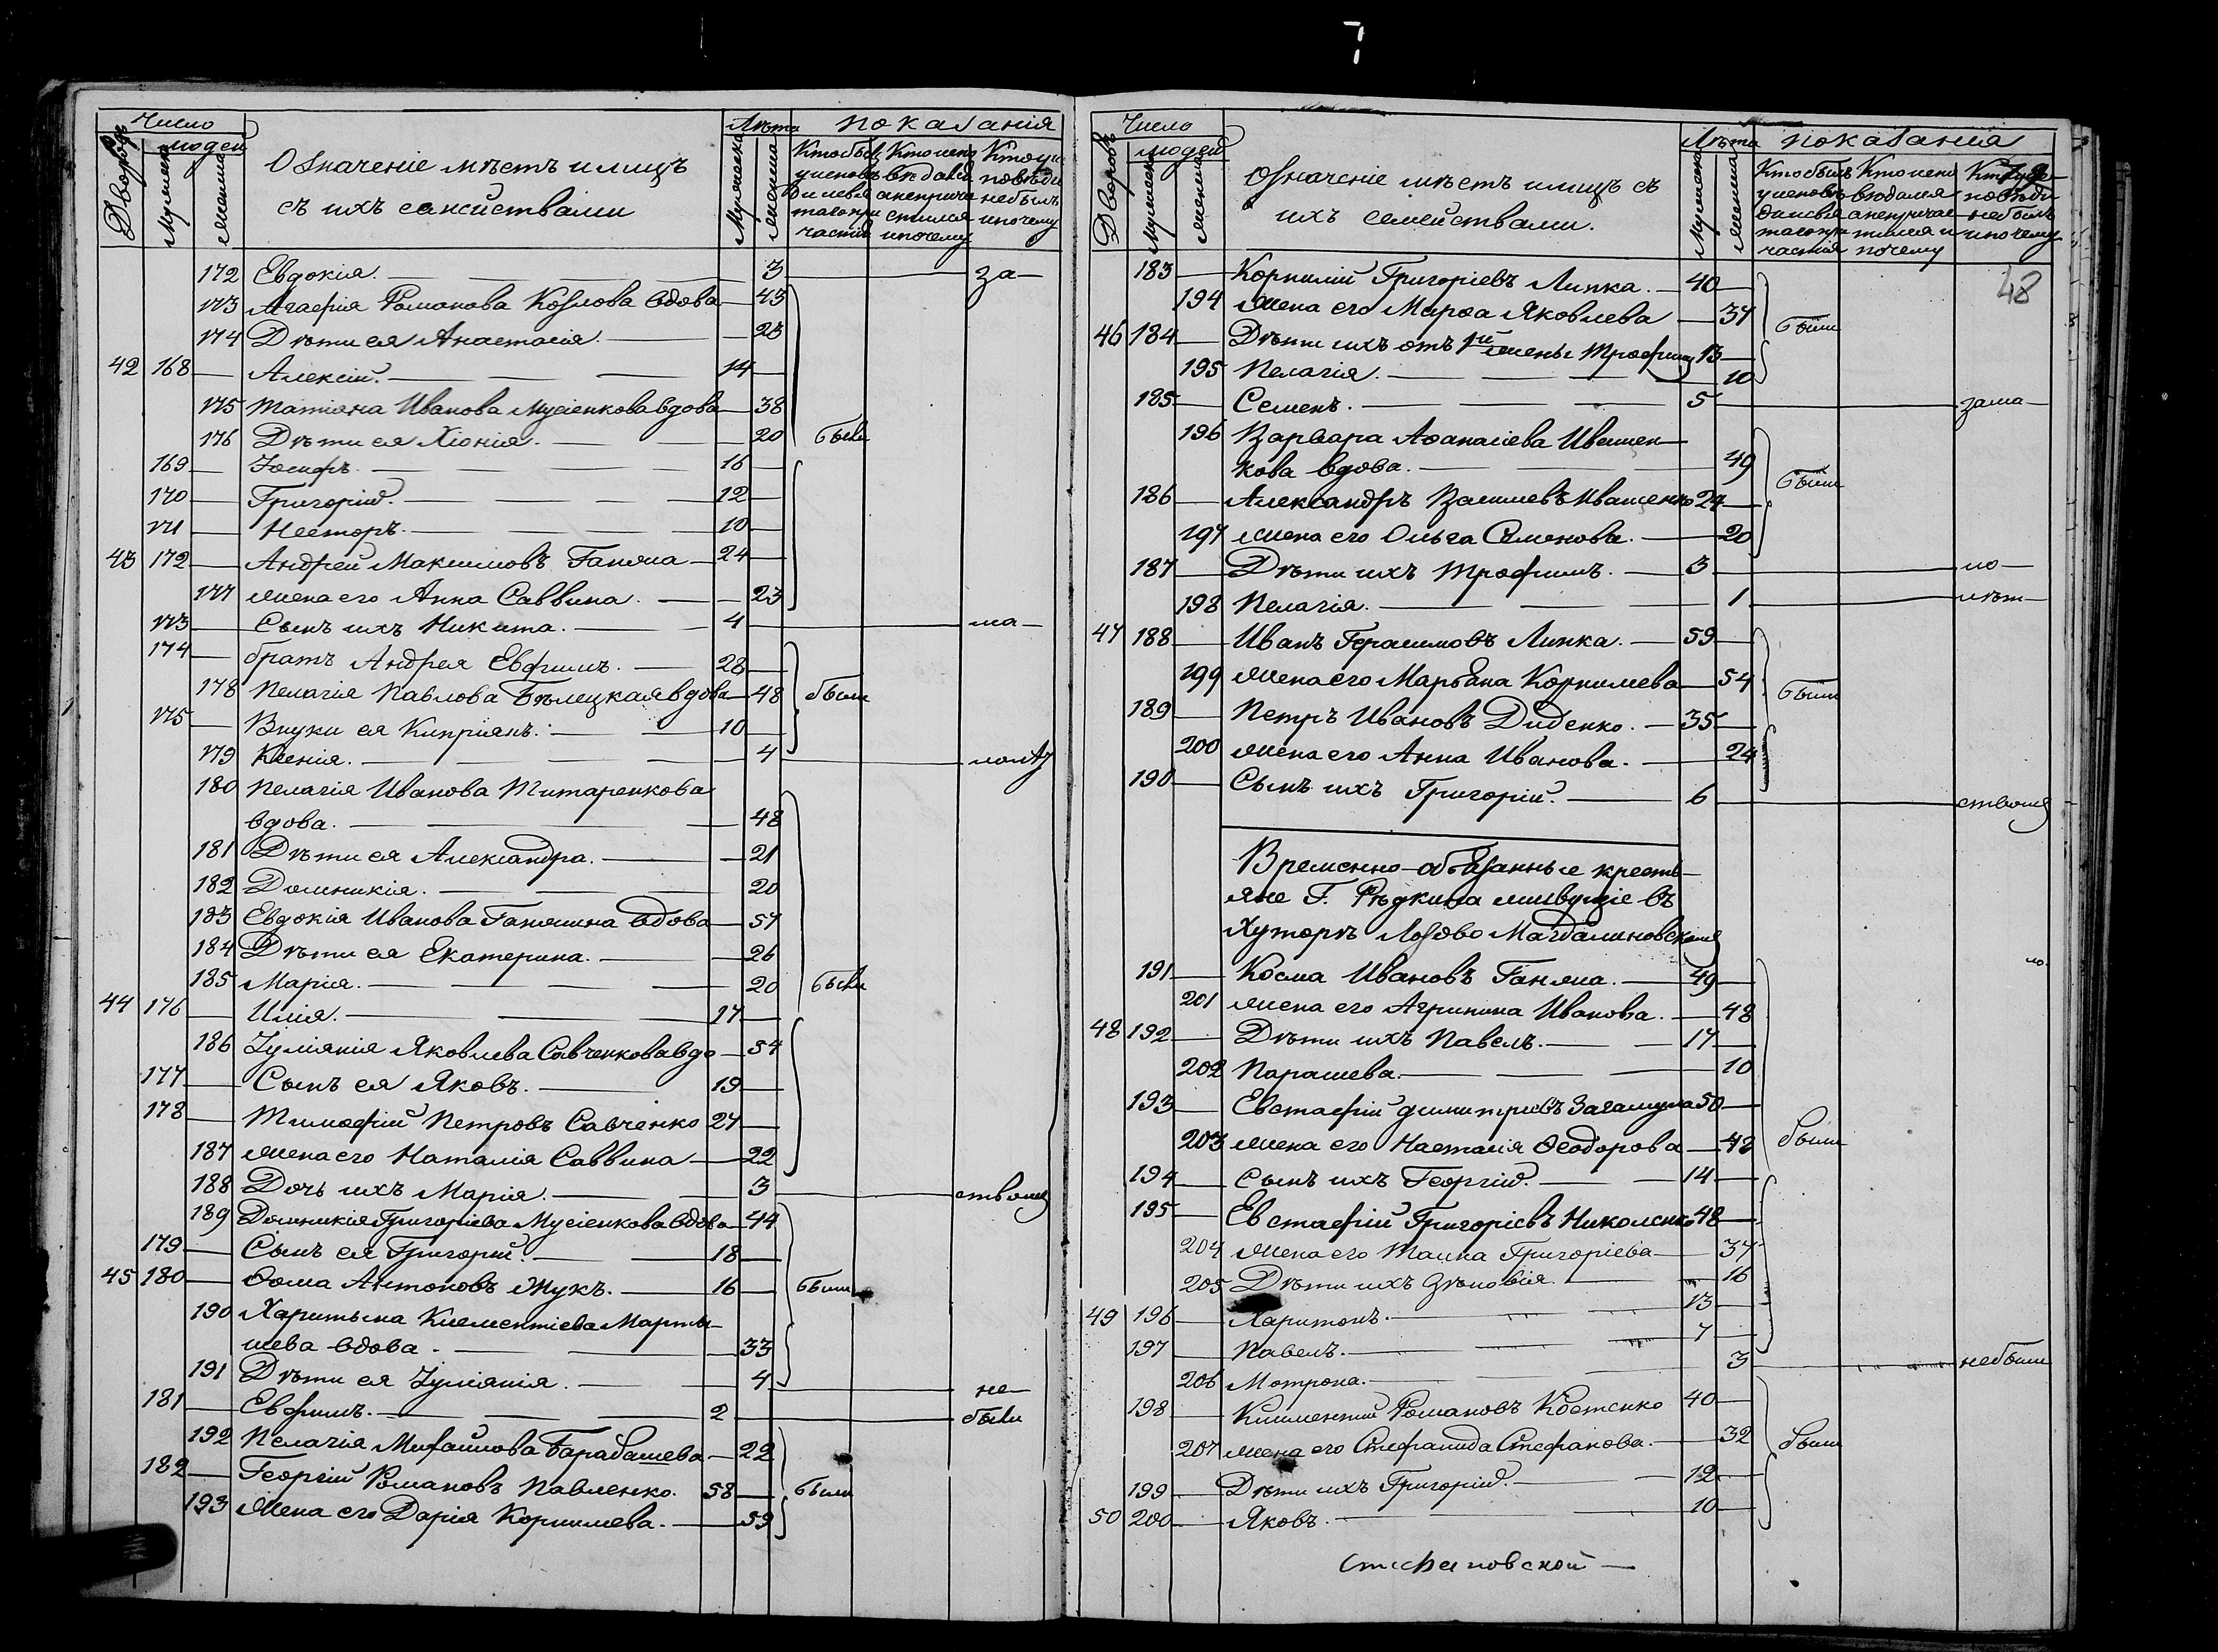 7
Число
людей
Дворовъ
Мужеска
Женска
Означеніе мѣстъ и лицъ
съ ихъ семействами
Лѣта
Мужеска
Женска
показанія
Кто былъ у исповѣди и святаго причастія
Кто исповѣдался а не причастился и почему
Кто у исповѣди не былъ и почему
172 Евдокія. 3 за
173 Агафія Романова Козлова вдова 43
174 Дѣти ея Анастасія. 23
42 168 Алексій. 14
175 Татіана Иванова Мусіенкова вдова 38
176 Дѣти ея Хіонія. 20 были
169 Іосифъ. 16
170 Григорій. 12
171 Несторъ. 10
43 172 Андрей Максимовъ Ганжа 24
177 жена его Анна Саввина. 23
173 Сынъ ихъ Никита. 4 ма
174 братъ Андрея Евфимъ. 28
178 Пелагія Павлова Бѣлецкая вдова 48 были
175 Внуки ея Кипріянъ. 10
179 Ксенія. 4
180 Пелагія Иванова Титаренкова
вдова. 48
181 Дѣти ея Александра. 21
182 Домникія. 20
183 Евдокія Иванова Ганжина вдова 57
184 Дѣти ея Екатерина. 26
185 Марія. 20 были
44 176 Илія. 17
186 Іуліянія Яковлева Савченкова вдо 54
177 Сынъ ея Яковъ. 19
178 Тимофій Петровъ Савченко 27
187 жена его Наталія Саввина 22
188 Дочь ихъ Марія. 3 ствомъ
189 Домникія Григоріева Мусіенкова вдова 44
179 Сынъ ея Григорій. 18
45 180 Ѳома Антоновъ Жукъ. 16 были
190 Харитына Климентіева Марты-
шева вдова. 33
191 Дѣти ея Іуліянія. 4 не
181 Евфимъ. 2 были
192 Пелагія Михайлова Барабашева 22
182 Георгій Романовъ Павленко. 58 были
193 Жена его Дарія Корнилева. 59
Число
людей
Дворовъ
Мужеска
Женска
Означеніе мѣстъ и лицъ съ
ихъ семействами.
Лѣта
Мужеска
Женска
показанія
Кто былъ у исповѣди и святаго причастія
Кто исповѣдался а не причастился и почему
Кто у исповѣди не былъ и почему
48
183 Корнилій Григоріевъ Липка. 40
194 жена его Марѳа Яковлева 37 были
46 184 Дѣти ихъ отъ 1й жены Трофимъ 13
195 Пелагія. 10
185 Семенъ. 5 зама
196 Варвара Аѳанасіева Иващен-
кова вдова. 49 были
186 Александръ Василіевъ Иващенко 24
197 жена его Ольга Семенова. 20
187 Дѣти ихъ Трофимъ. 3 ло
198 Пелагія. 1 лѣт
47 188 Иванъ Герасимовъ Липка. 59
199 жена его Марьяна Корнилева 54 были
189 Петръ Ивановъ Диденко. 35
200 жена его Анна Иванова. 24
190 Сынъ ихъ Григорій. 6 ствомъ
Временно-обязанные кресть-
яне Г. Рѣдкина живущіе въ
Хуторѣ Лозово Магдалиновскомъ
191 Косма Ивановъ Ганжа. 49
201 жена его Агрипина Иванова. 48
48 192 Дѣти ихъ Павелъ. 17
202 Парашева. 10
193 Евстафій Димитріевъ 50
203 жена его Настасія Ѳеодорова 48 были
194 Сынъ ихъ Георгій. 14
195 Евстафій Григоріевъ Николенко 48
204 жена его Григоріева 37
205 Дѣти ихъ Зѣновія. 16
49 196 Харитонъ. 13
197 Павелъ. 7
206 Мотрона. 3 небыли
198 Климентій Романовъ Костенко 40
207 жена его Стефанида Стефанова. 32 были
199 Дѣти ихъ Григорій. 12
50 200 Яковъ. 10
Стефановской